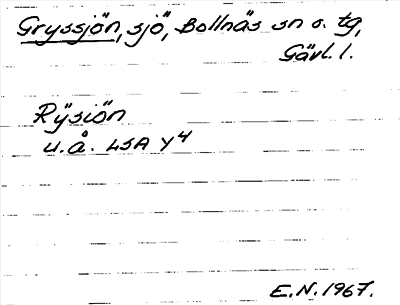 Gryssjön, sjö, Bollnäs sn o. tg,
Gävl. l.
Rÿsiön
u.å. LSA Y4
E.N. 1967.